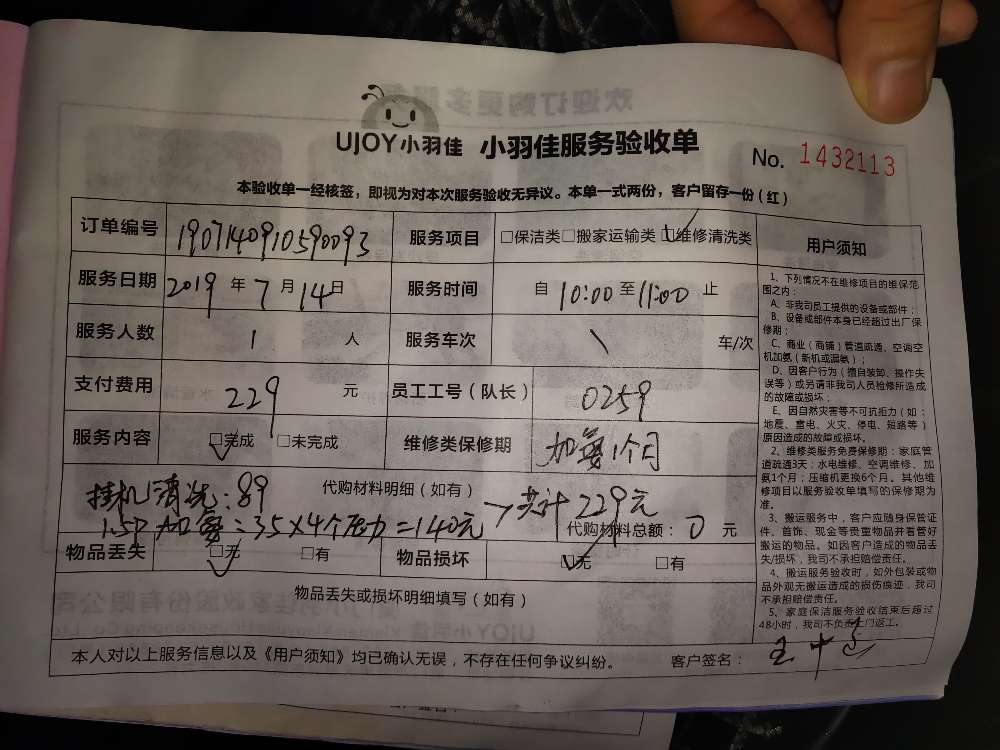 UJOY小羽佳 小羽佳服务验收单
No. 1432113
本验收单一经核签，即视为对本次服务验收无异议。本单一式两份，客户留存一份（红）
订单编号 1907140910590093 服务项目 □保洁类□搬家运输类☑维修清洗类
服务日期 2019年7月14日 服务时间 自10:00至11:00止
服务人数 1 人 服务车次 \ 车/次
支付费用 229 元 员工工号（队长） 0259
服务内容 ☑完成 □未完成 维修类保修期 加氨1个月
代购材料明细（如有）
挂机清洗：89
1.5P加氨：35×4个压力=140元 共计229元
代购材料总额：0元
物品丢失 ☑无 □有 物品损坏 ☑无 □有
物品丢失或损坏明细填写（如有）
本人对以上服务信息以及《用户须知》均已确认无误，不存在任何争议纠纷。 客户签名：
用户须知
1、下列情况不在维修项目的维保范
围之内：
A、非我司员工提供的设备或部件；
B、设备或部件本身已经超过出厂保
修期；
C、商业（商铺）管道疏通、空调空
机加氨（新机或漏氨）；
D、因客户行为（擅自装卸、操作失
误等）或另请非我司人员检修所造成
的故障或损坏；
E、因自然灾害等不可抗拒力（如：
地震、雷电、火灾、停电、短路等）
原因造成的故障或损坏。
2、维修类服务免费保修期：家庭管
道疏通3天；水电维修、空调维修、加
氨1个月；压缩机更换6个月。其他维
修项目以服务验收单填写的保修期为
准。
3、搬运服务中，客户应随身保管证
件、首饰、现金等贵重物品并看管好
搬运的物品。如因客户造成的物品丢
失/损坏，我司不承担赔偿责任。
4、搬运服务验收时，如外包装或物
品外观无搬运造成的损伤痕迹，我司
不承担赔偿责任。
5、家庭保洁服务验收结束后超过
48小时，我司不负责上门返工。